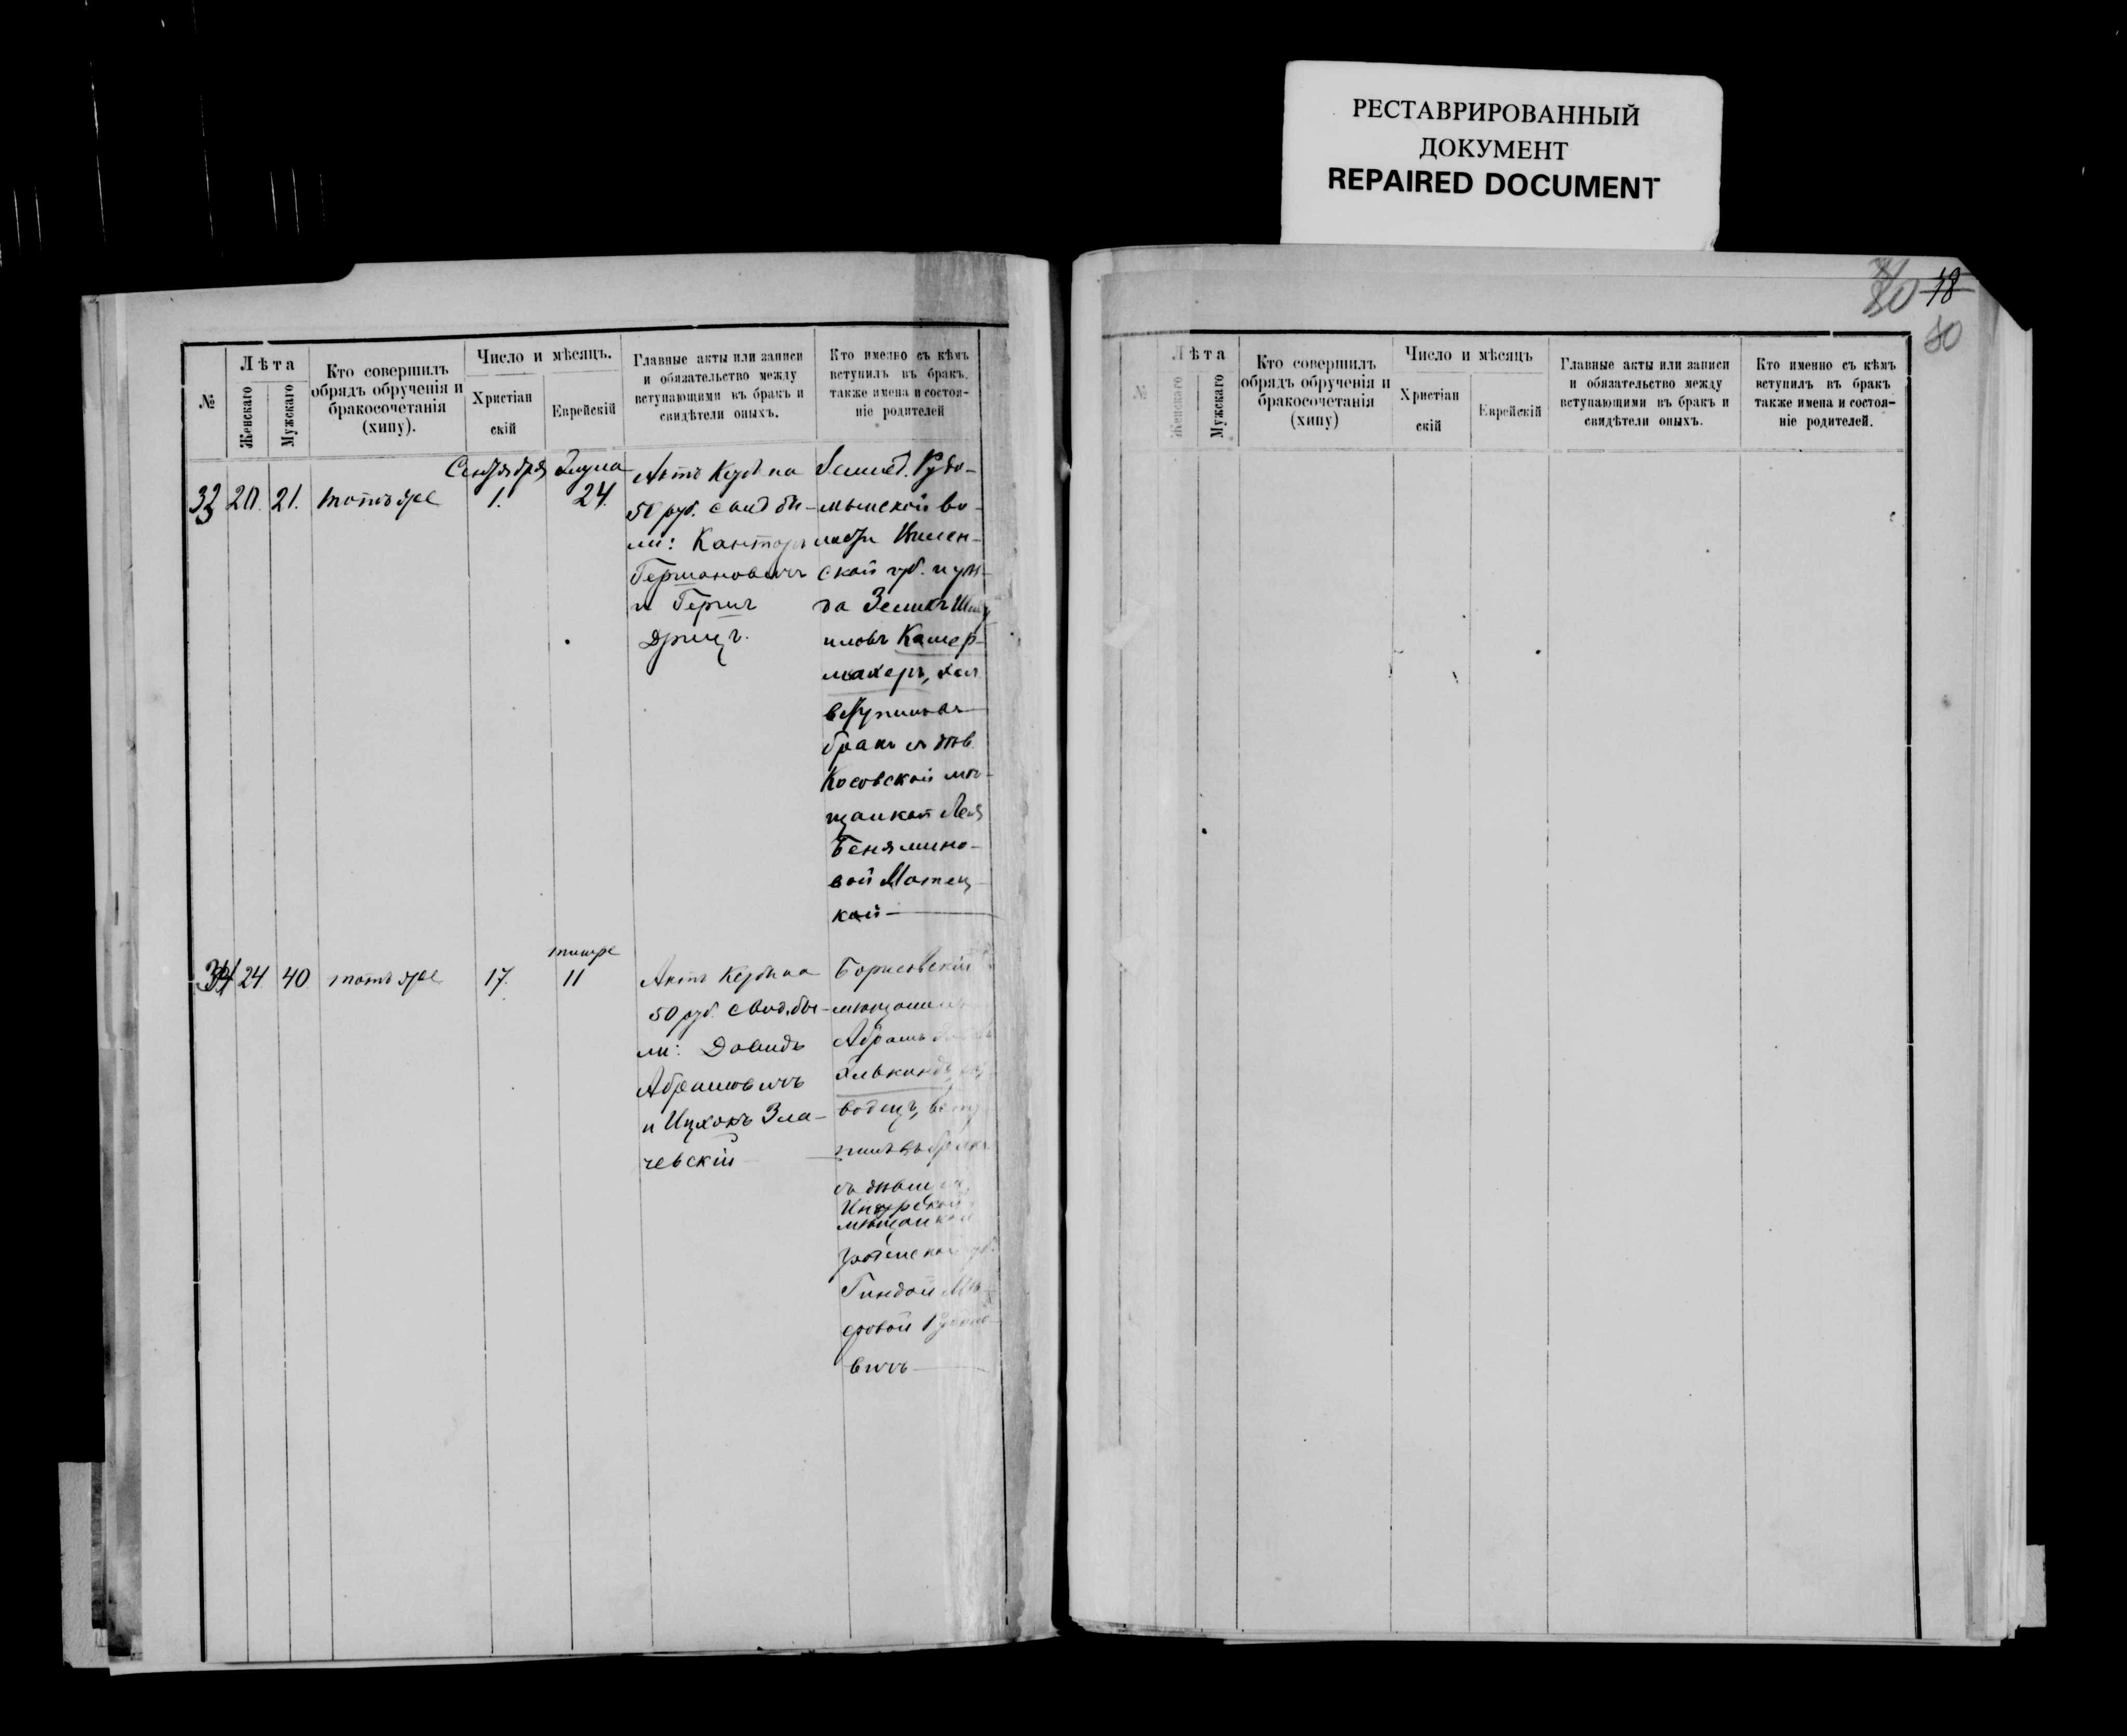 РЕСТАВРИРОВАННЫЙ
ДОКУМЕНТ
REPAIRED DOCUMENT
№
Лѣта
Женскаго
Мужскаго
Кто совершилъ
обрядъ обрученія и
бракосочетанія
(хипу).
Число и мѣсяцъ.
Христіан
скій
Еврейскій
Главные акты или записи
и обязательство между
вступающими въ бракъ и
свидѣтели оныхъ.
Кто именно съ кѣмъ
вступилъ въ бракъ,
также имена и состоя-
ніе родителей
Сентября Элула
33 20. 21. тотъ же 1. 24.
Актъ Керб на
50 руб. свид бы-
ли: Канторъ
Германовичъ
и Герцъ
Дрицъ.
Землед. Рудо-
мынской во-
лости Вилен-
ской губ. и уѣз-
да Зеликъ
Камер-
махеръ, хол
вступилъ въ
бракъ съ дѣв.
Косовской мѣ-
щанкой Лея
Бенямино-
вой Мотец-
кой
тишре
34 24 40 тотъ же 17. 11
Актъ Керб на
50 руб. свид. бы-
ли: Давидъ
Абрамовичъ
и Ицхокъ Зла-
чевскій
Борисовскій
мѣщанинъ
Абрамъ
Элькиндъ, раз
водецъ, всту
пилъ въ бракъ
съ дѣвицей
Индурской
мѣщанкой
Гродненской губ.
Гиндой Мѣ-
еровой
вичъ
18
80
50
№
Лѣта
Женскаго
Мужскаго
Кто совершилъ
обрядъ обрученія и
бракосочетанія
(хипу)
Число и мѣсяцъ
Христіан
скій
Еврейскій
Главные акты или записи
и обязательство между
вступающими въ бракъ и
свидѣтели оныхъ.
Кто именно съ кѣмъ
вступилъ въ бракъ
также имена и состоя-
ніе родителей.